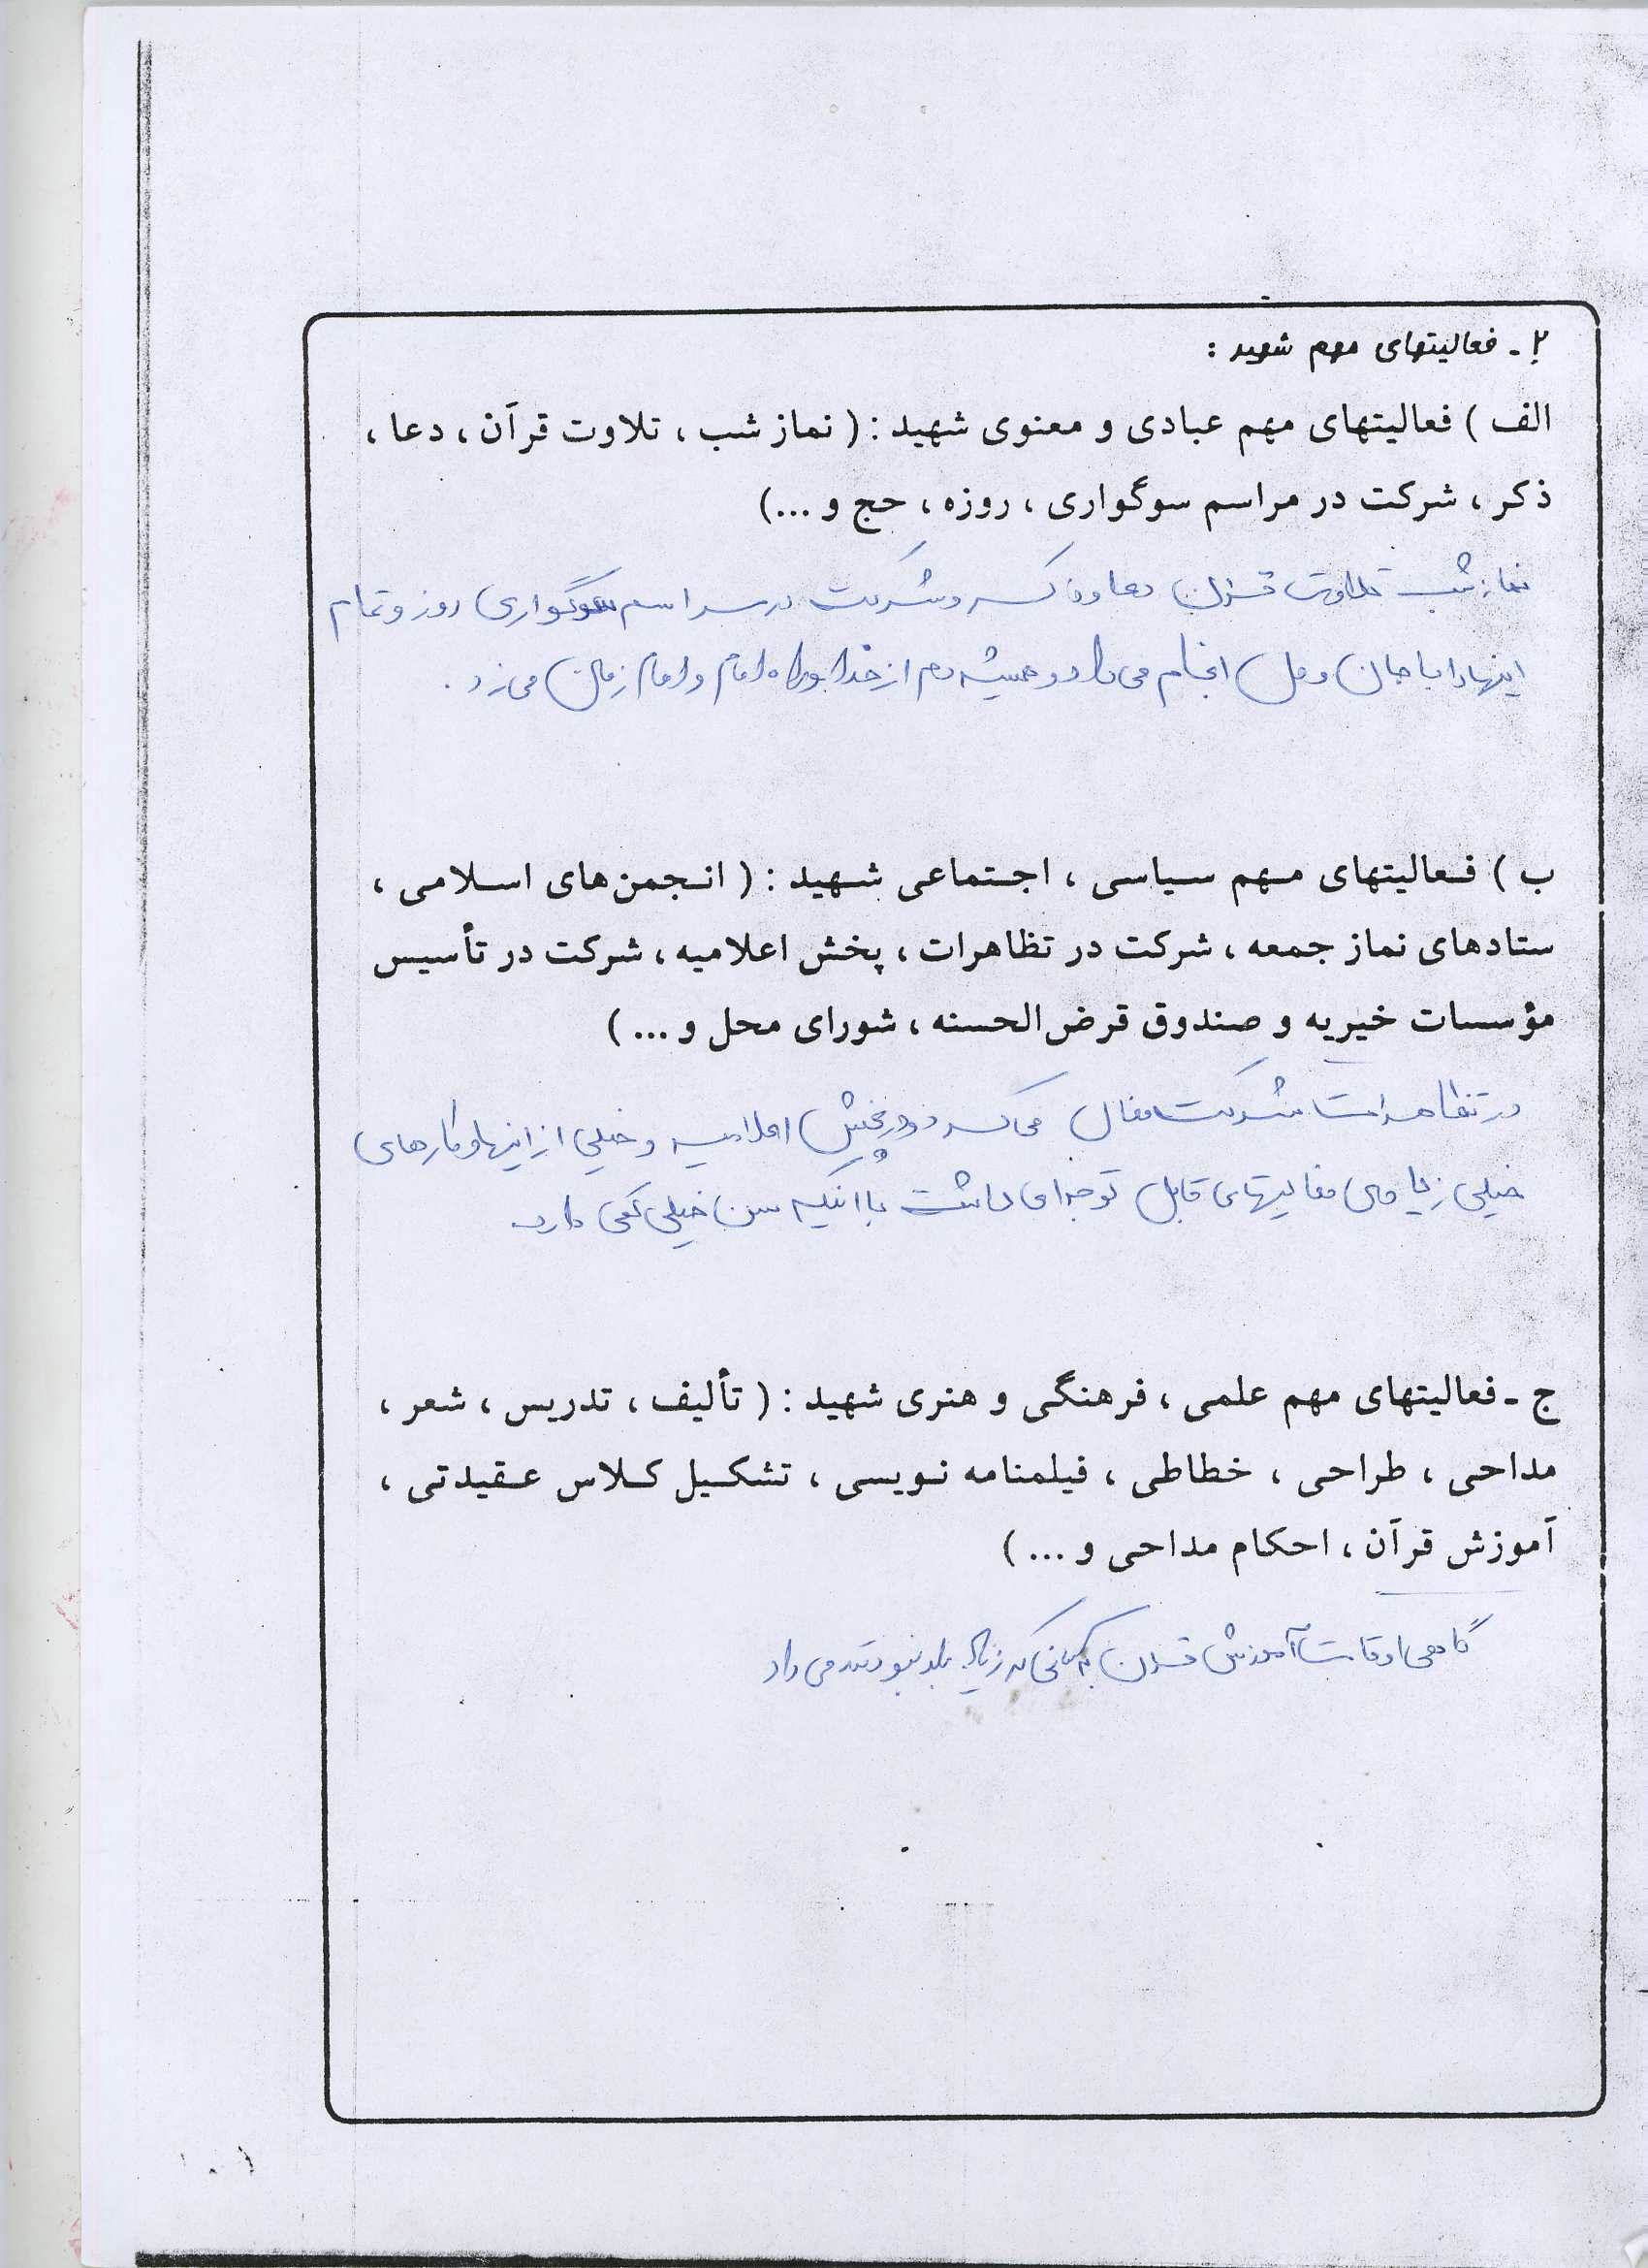 ۲ ـ فعالیتهای مهم شهید :
الف ) فعالیتهای مهم عبادی و معنوی شهید : ( نماز شب ، تلاوت قرآن ، دعا ،
ذکر ، شرکت در مراسم سوگواری ، روزه ، حج و ...)
نماز شب تلاوت قرآن دعا و ذکر و شرکت در مراسم سوگواری روز و تمام
اینها را با جان و دل انجام می داد و همیشه دم از خدا و راه امام و امام زمان می زد .
ب ) فعالیتهای مهم سیاسی ، اجتماعی شهید : ( انجمن‌های اسلامی ،
ستادهای نماز جمعه ، شرکت در تظاهرات ، پخش اعلامیه ، شرکت در تأسیس
مؤسسات خیریه و صندوق قرض‌الحسنه ، شورای محل و ... )
در تظاهرات شرکت فعال می کرد و در پخش اعلامیه و خیلی از اینها و کارهای
خیلی زیادی فعالیتهای قابل توجه ای داشت با اینکه سن خیلی کمی دارد
ج ـ فعالیتهای مهم علمی ، فرهنگی و هنری شهید : ( تألیف ، تدریس ، شعر ،
مداحی ، طراحی ، خطاطی ، فیلمنامه نویسی ، تشکیل کلاس عقیدتی ،
آموزش قرآن ، احکام مداحی و ... )
گاهی اوقات آموزش قرآن به کسانی که زیاد بلد نبودند می داد